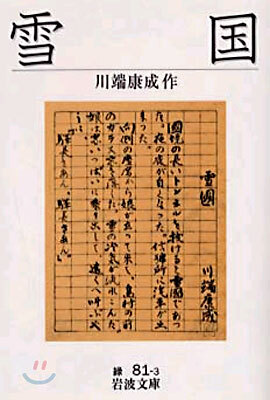 雪国
川端康成作
雪國
川端康成
國境の長いトンネルを抜けると雪國であつ
た。夜の底が白くなつた。信號所に汽車が止
まつた。
向側の座席から娘が立つて来て、島村の前
のガラス窓を落した。雪の冷氣が流れこんだ。
娘は窓いつぱいに乗り出して、遠くへ呼ぶや
うに、
「駅長さあん、駅長さあん。」
緑 81-3
岩波文庫